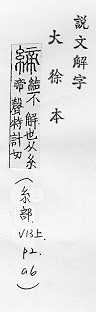 説文解字
大徐本
締 結不解也从糸
帝聲特計切
(糸部
V13上
p2
a6)